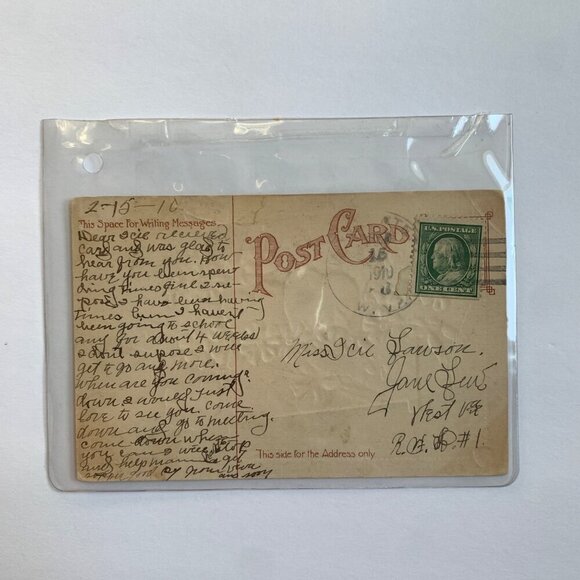 2-15-10
This Space For Writing Messages
Dear Icie received
card and was glad to
hear from you. How
have you been spen
ding times fine I su
pose I have been having
times I haven't
been going to school
any for about 4 weeks
I don't supose I will
get to go any more.
when are you coming
down I would just
love to see you. come
down and go to meeting.
come down when
you can I will stop
and help mamma get
supper by
POST CARD
15
1910
W.VA
U.S. POSTAGE
ONE CENT
Miss Icie Lawson,
Jane Lew
West Va
R.F.D. #1.
This side for the Address only